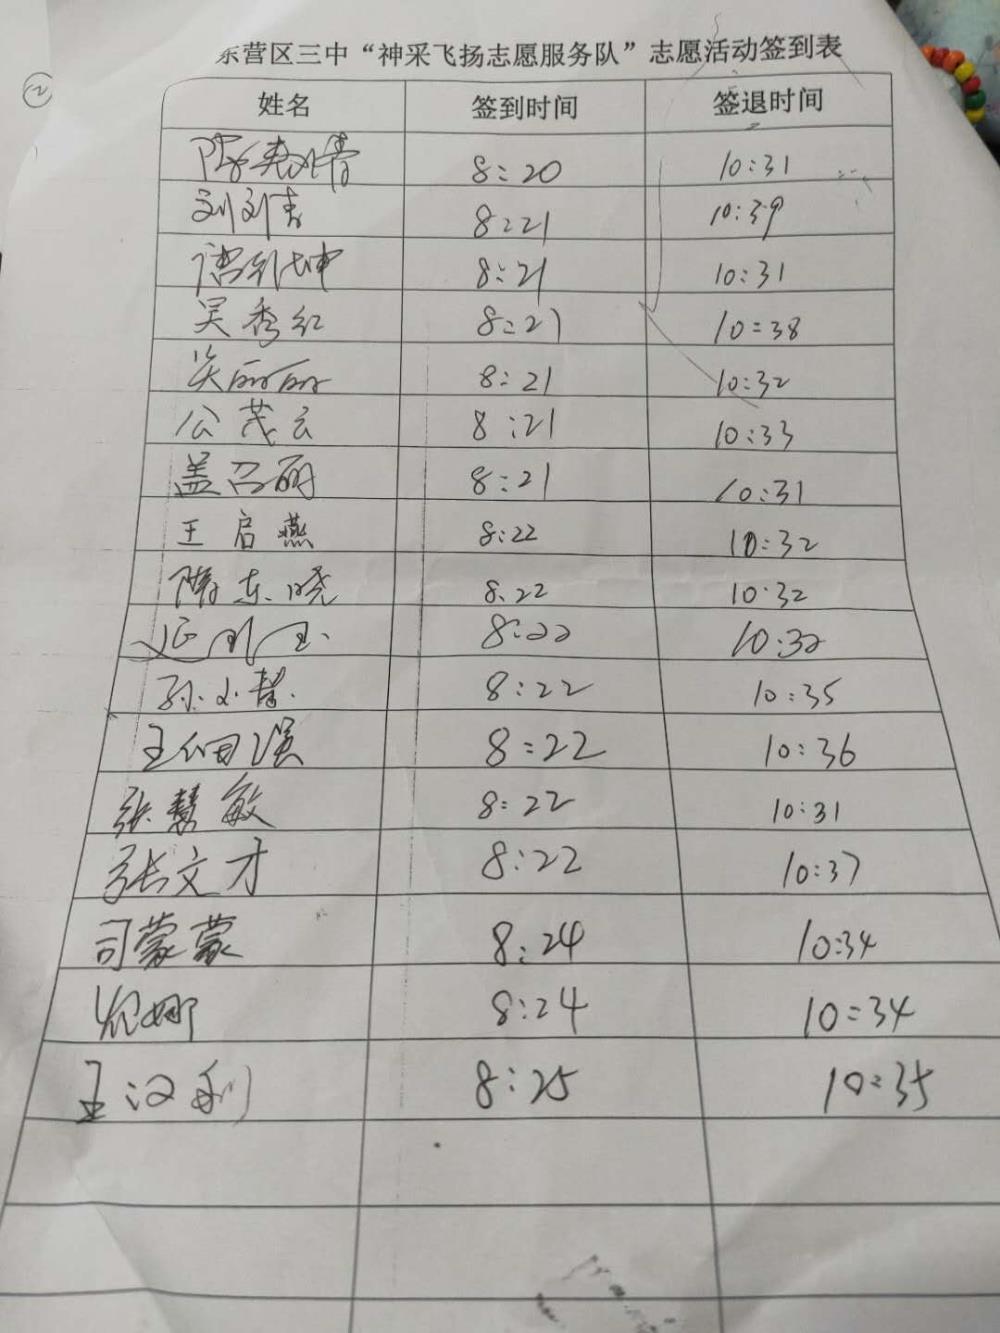 东营区三中“神采飞扬志愿服务队”志愿活动签到表
②
姓名 签到时间 签退时间
8:20 10:31
8:21 10:39
8:21 10:31
吴秀红 8:21 10:38
丽丽 8:21 10:32
公茂云 8:21 10:33
盖召丽 8:21 10:31
王启燕 8:22 10:32
隋东晓 8:22 10:32
8:22 10:32
孙小慧 8:22 10:35
王细溪 8:22 10:36
张慧敏 8:22 10:31
张文才 8:22 10:37
司蒙蒙 8:24 10:34
娜 8:24 10:34
王汉利 8:25 10:35